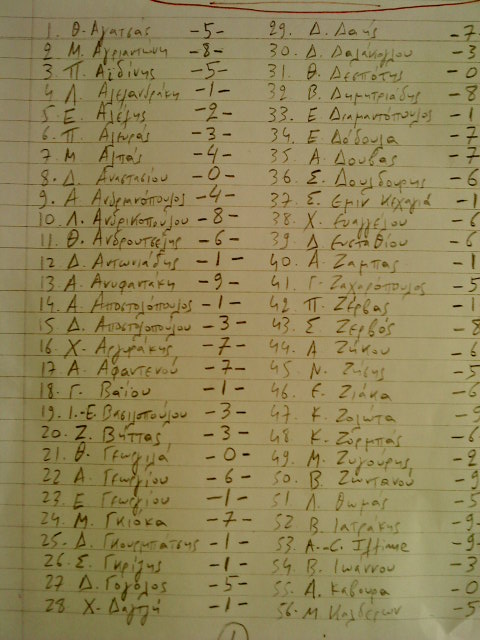 1. Θ. Αγατσάς -5-
2 Μ. Αγριαντώνη -8-
3. Π. Αϊδίνης -5-
4 Λ. Αλεξανδράκη -1-
5. Ε. Αλέξης -2-
6. Π. Αλευράς -3-
7. Μ. Αλπάς -4-
8. Δ. Αναστασίου -0-
9. Α. Ανδριανόπουλος -4-
10. Λ. Ανδρικοπούλου -8-
11. Θ. Ανδρουτσέλης -6-
12 Δ. Αντωνιάδης -1-
13. Α. Ανυφαντάκη -9-
14. Α. Αποστολόπουλος -1-
15. Δ. Αποστολοπούλου -3-
16. Χ. Αργυράκης -7-
17. Α. Αφαντενού -7-
18. Γ. Βαΐου -1-
19. Ι.-Ε. Βασιλοπούλου -3-
20. Ζ. Βήττας -3-
21. Θ. Γεωργιλά -0-
22 Α. Γεωργίου -6-
23. Ε Γεωργίου -1-
24. Μ. Γκιόκα -7-
25. Δ. Γκουρμπάτσης -1-
26. Σ. Γκρίζης -1-
27 Δ. Γόγολος -5-
28. Χ. Δαγτζή -1-
29. Δ. Δαής -7
30. Δ. Δαλάκογλου -3
31. Θ. Δεσπότης -0
32 Β. Δημητριάδης -8
33. Ε. Διαμαντόπουλος -1
34. Ε Δόδουλα -7
35. Α. Δούβας -7
36. Σ. Δουλδούρης -6
37. Σ. Εμίν Κεχαγιά -1
38. Χ. Ευαγγελίου -6
39. Δ. Ευσταθίου -6
40. Α. Ζάμπας -1
41. Γ. Ζαχαρόπουλος -5
42. Π. Ζέρβας -1
43. Σ. Ζερβός -8
44. Α. Ζήκου -6
45. Ν. Ζήσης -5
46. Ε. Ζιάκα -6
47. Κ. Ζολώτα -9
48 Κ. Ζορμπάς -6
49. Μ. Ζυγούρης -2
50. Β. Ζωντανού -9
51 Λ. Θωμάς -5
52. Β. Ιατράκης -9
53. A.-C. Iftime -9
54. Β. Ιωάννου -3
55. Α. Καβουρα -0
56. Μ Καλδερων -5
1